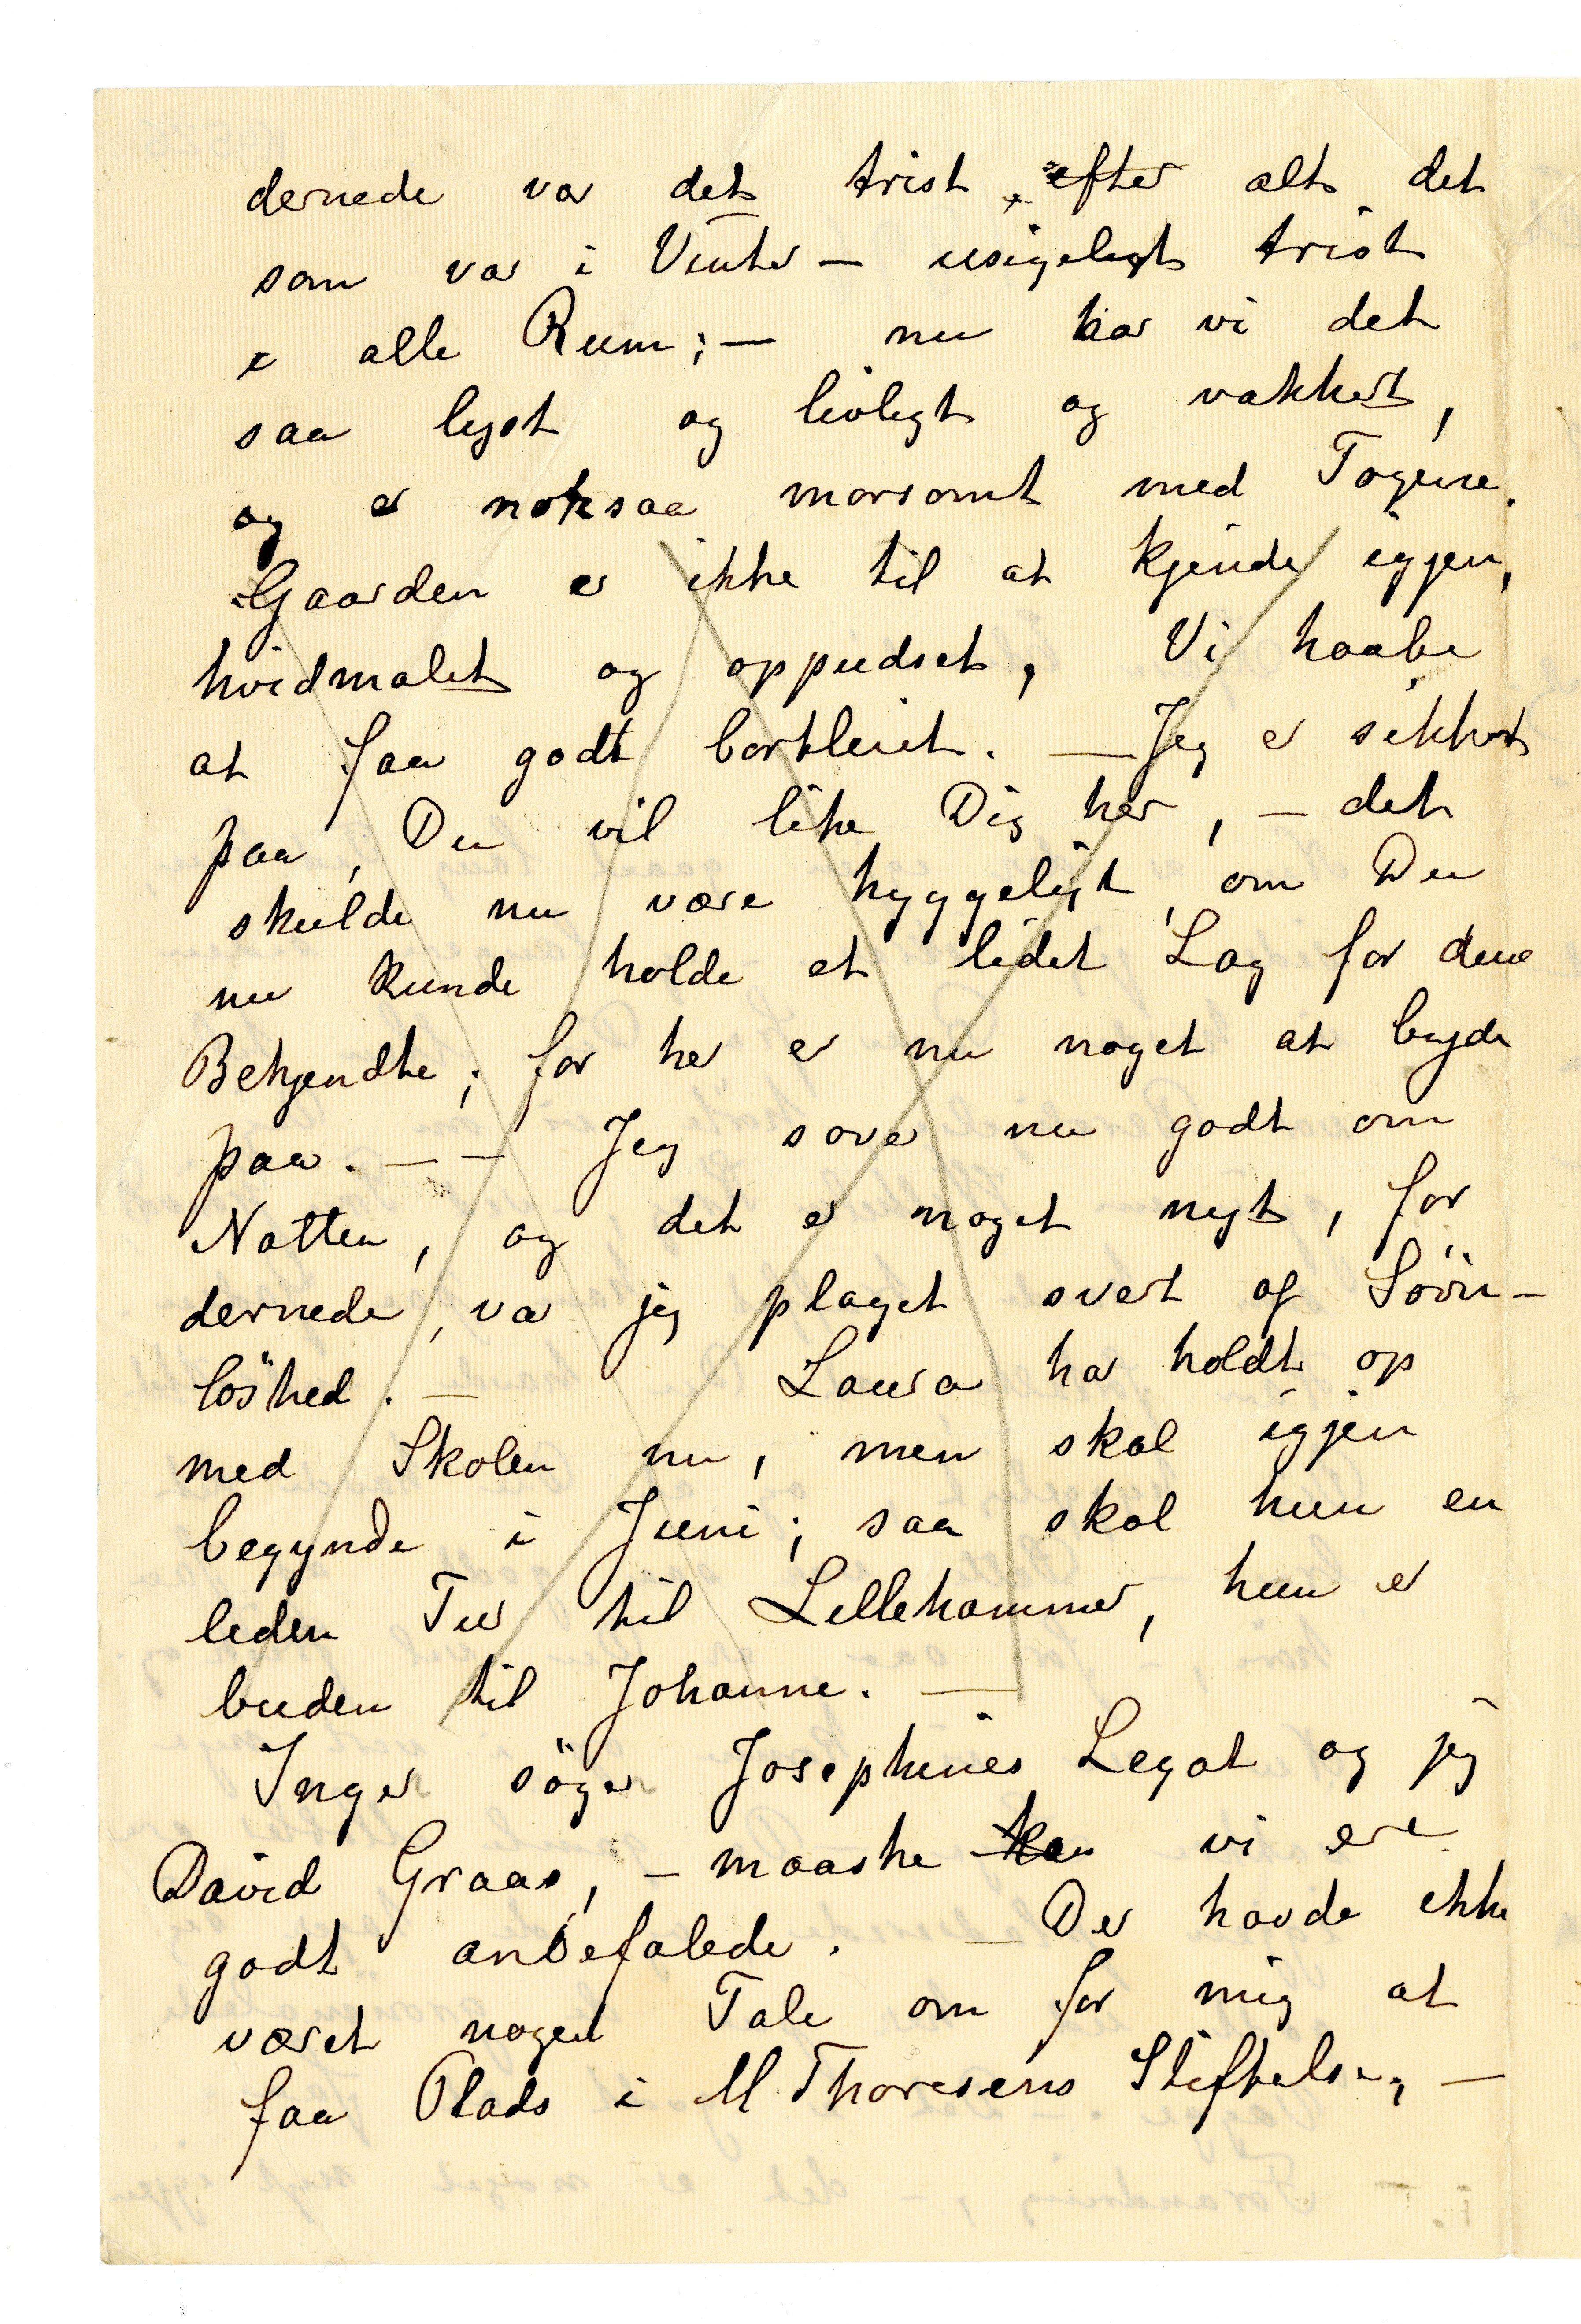 dernede var det trist, efter alt det
som var i Vinter – usigeligt trist
i alle Rum; – nu har vi det
saa lyst og livligt og vakkert,
og er noksaa morsomt med Togene.
Gaarden er ikke til at kjende igjen,
hvidmalet og oppudset, Vi haabe
at faa godt bortleiet. – Jeg er sikker
paa, Du vil like Dig her, – det
skulde nu være hyggeligt, om Du
nu kunde holde et lidet Lag for dine
Bekjendte; for her er nu noget at byde
paa. – – Jeg sover nu godt om
Natten, og det er noget nyt, for
dernede, var jeg plaget svert af Søvn-
løshed. – Laura har holdt op
med Skolen nu, men skal igjen
begynde i Juni; saa skal hun en
liden Tur til Lillehammer, hun er
buden til Johanne. –
Inger söger Josephines Legat og jeg
David Graas, – maaske kan vi ere
godt anbefalede. – Der havde ikke
været nogen Tale om for mig at
faa Plads i M Thoresens Stiftelse, –